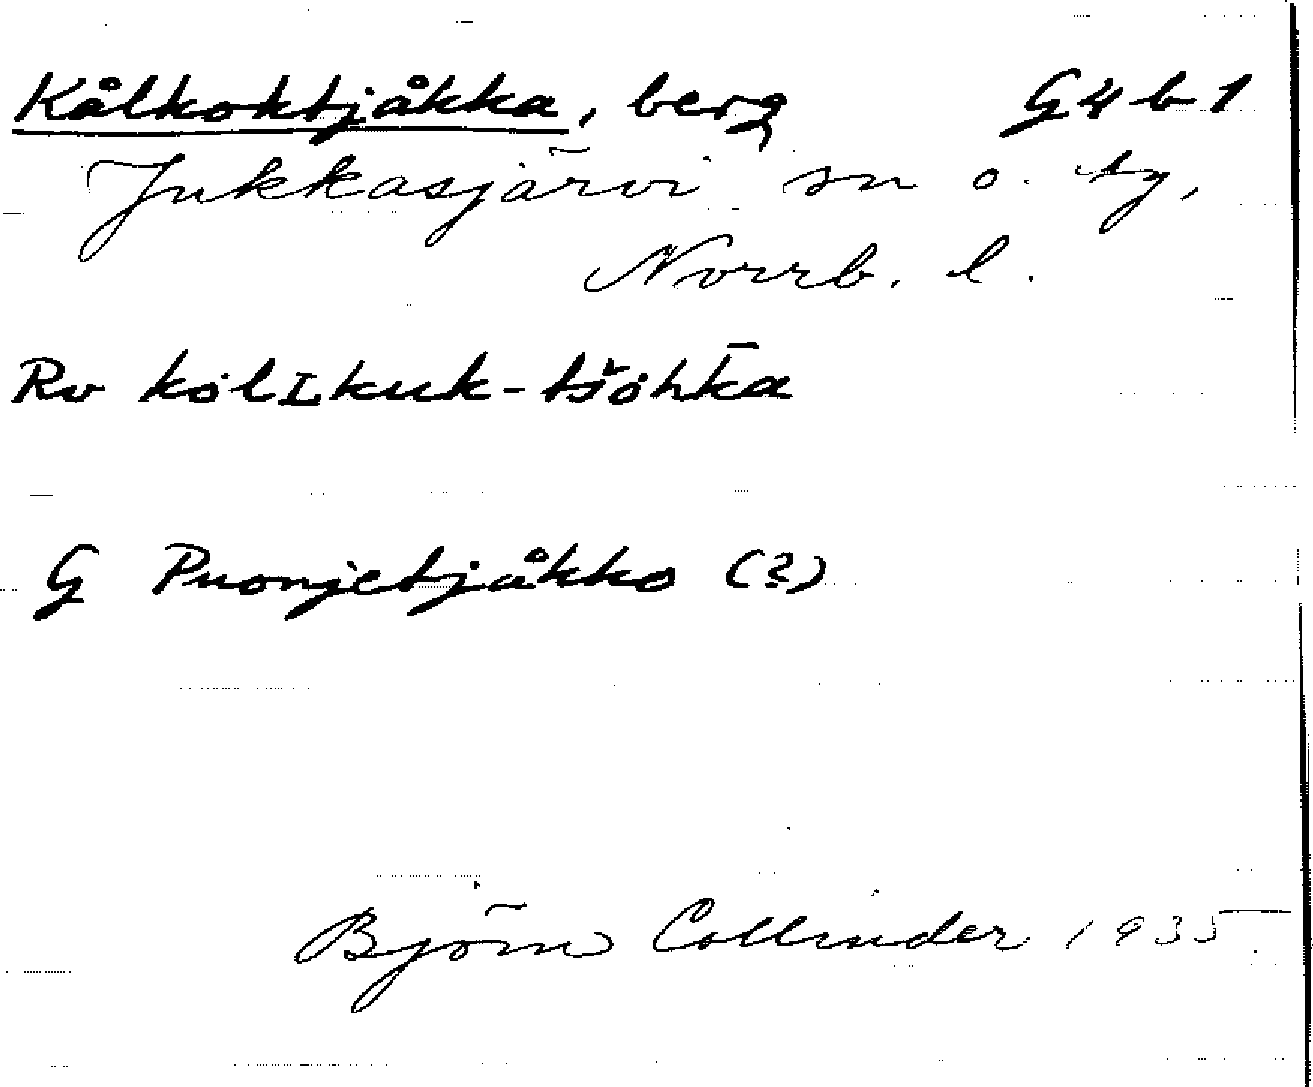 Kålkoktjåkka, berg G4b1
Jukkasjärvi sn o. tg,
Norrb. l.
Rv kolɪkuk-tšohk̄a
G Puonjetjåkko (?)
Björn Collinder 1935.